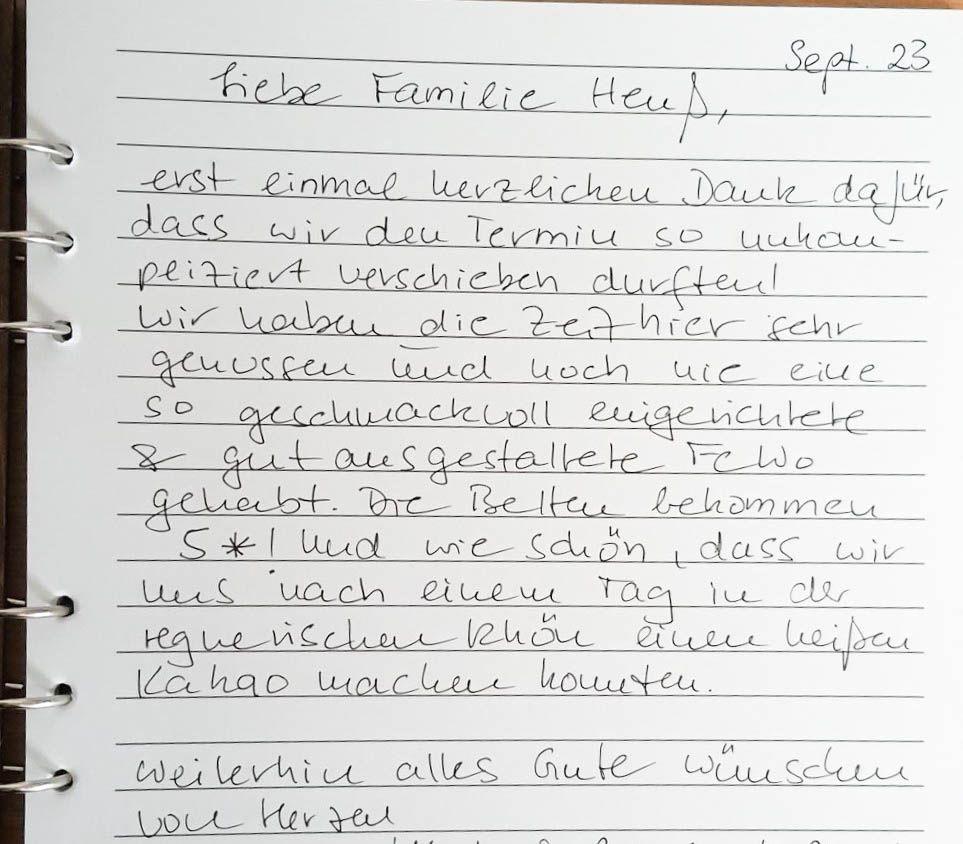 Sept. 23
Liebe Familie Heuß,
erst einmal herzlichen Dank dafür,
dass wir den Termin so unkom-
pliziert verschieben durften!
Wir haben die Zeit hier sehr
genossen und noch nie eine
so geschmackvoll eingerichtete
& gut ausgestattete FeWo
gehabt. Die Betten bekommen
5*! Und wie schön, dass wir
uns nach einem Tag in der
regnerischen Rhön einen heißen
Kakao machen konnten.
Weiterhin alles Gute wünschen
von Herzen